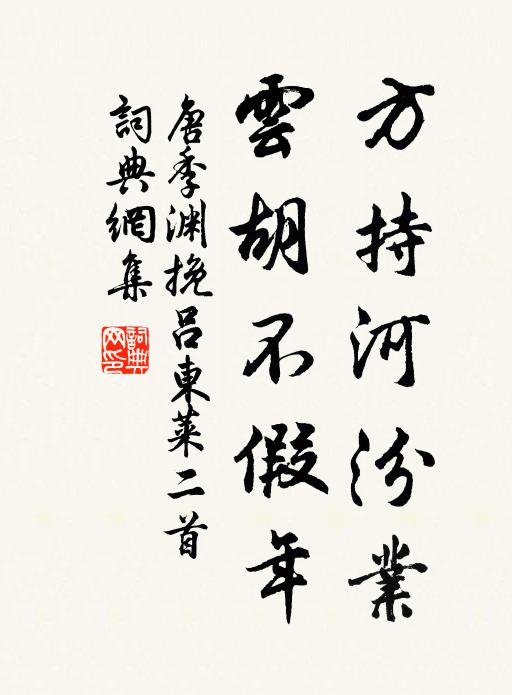 方持河汾業
雲胡不假年
唐季淵挽呂東萊二首
詞典網集
詞典网印